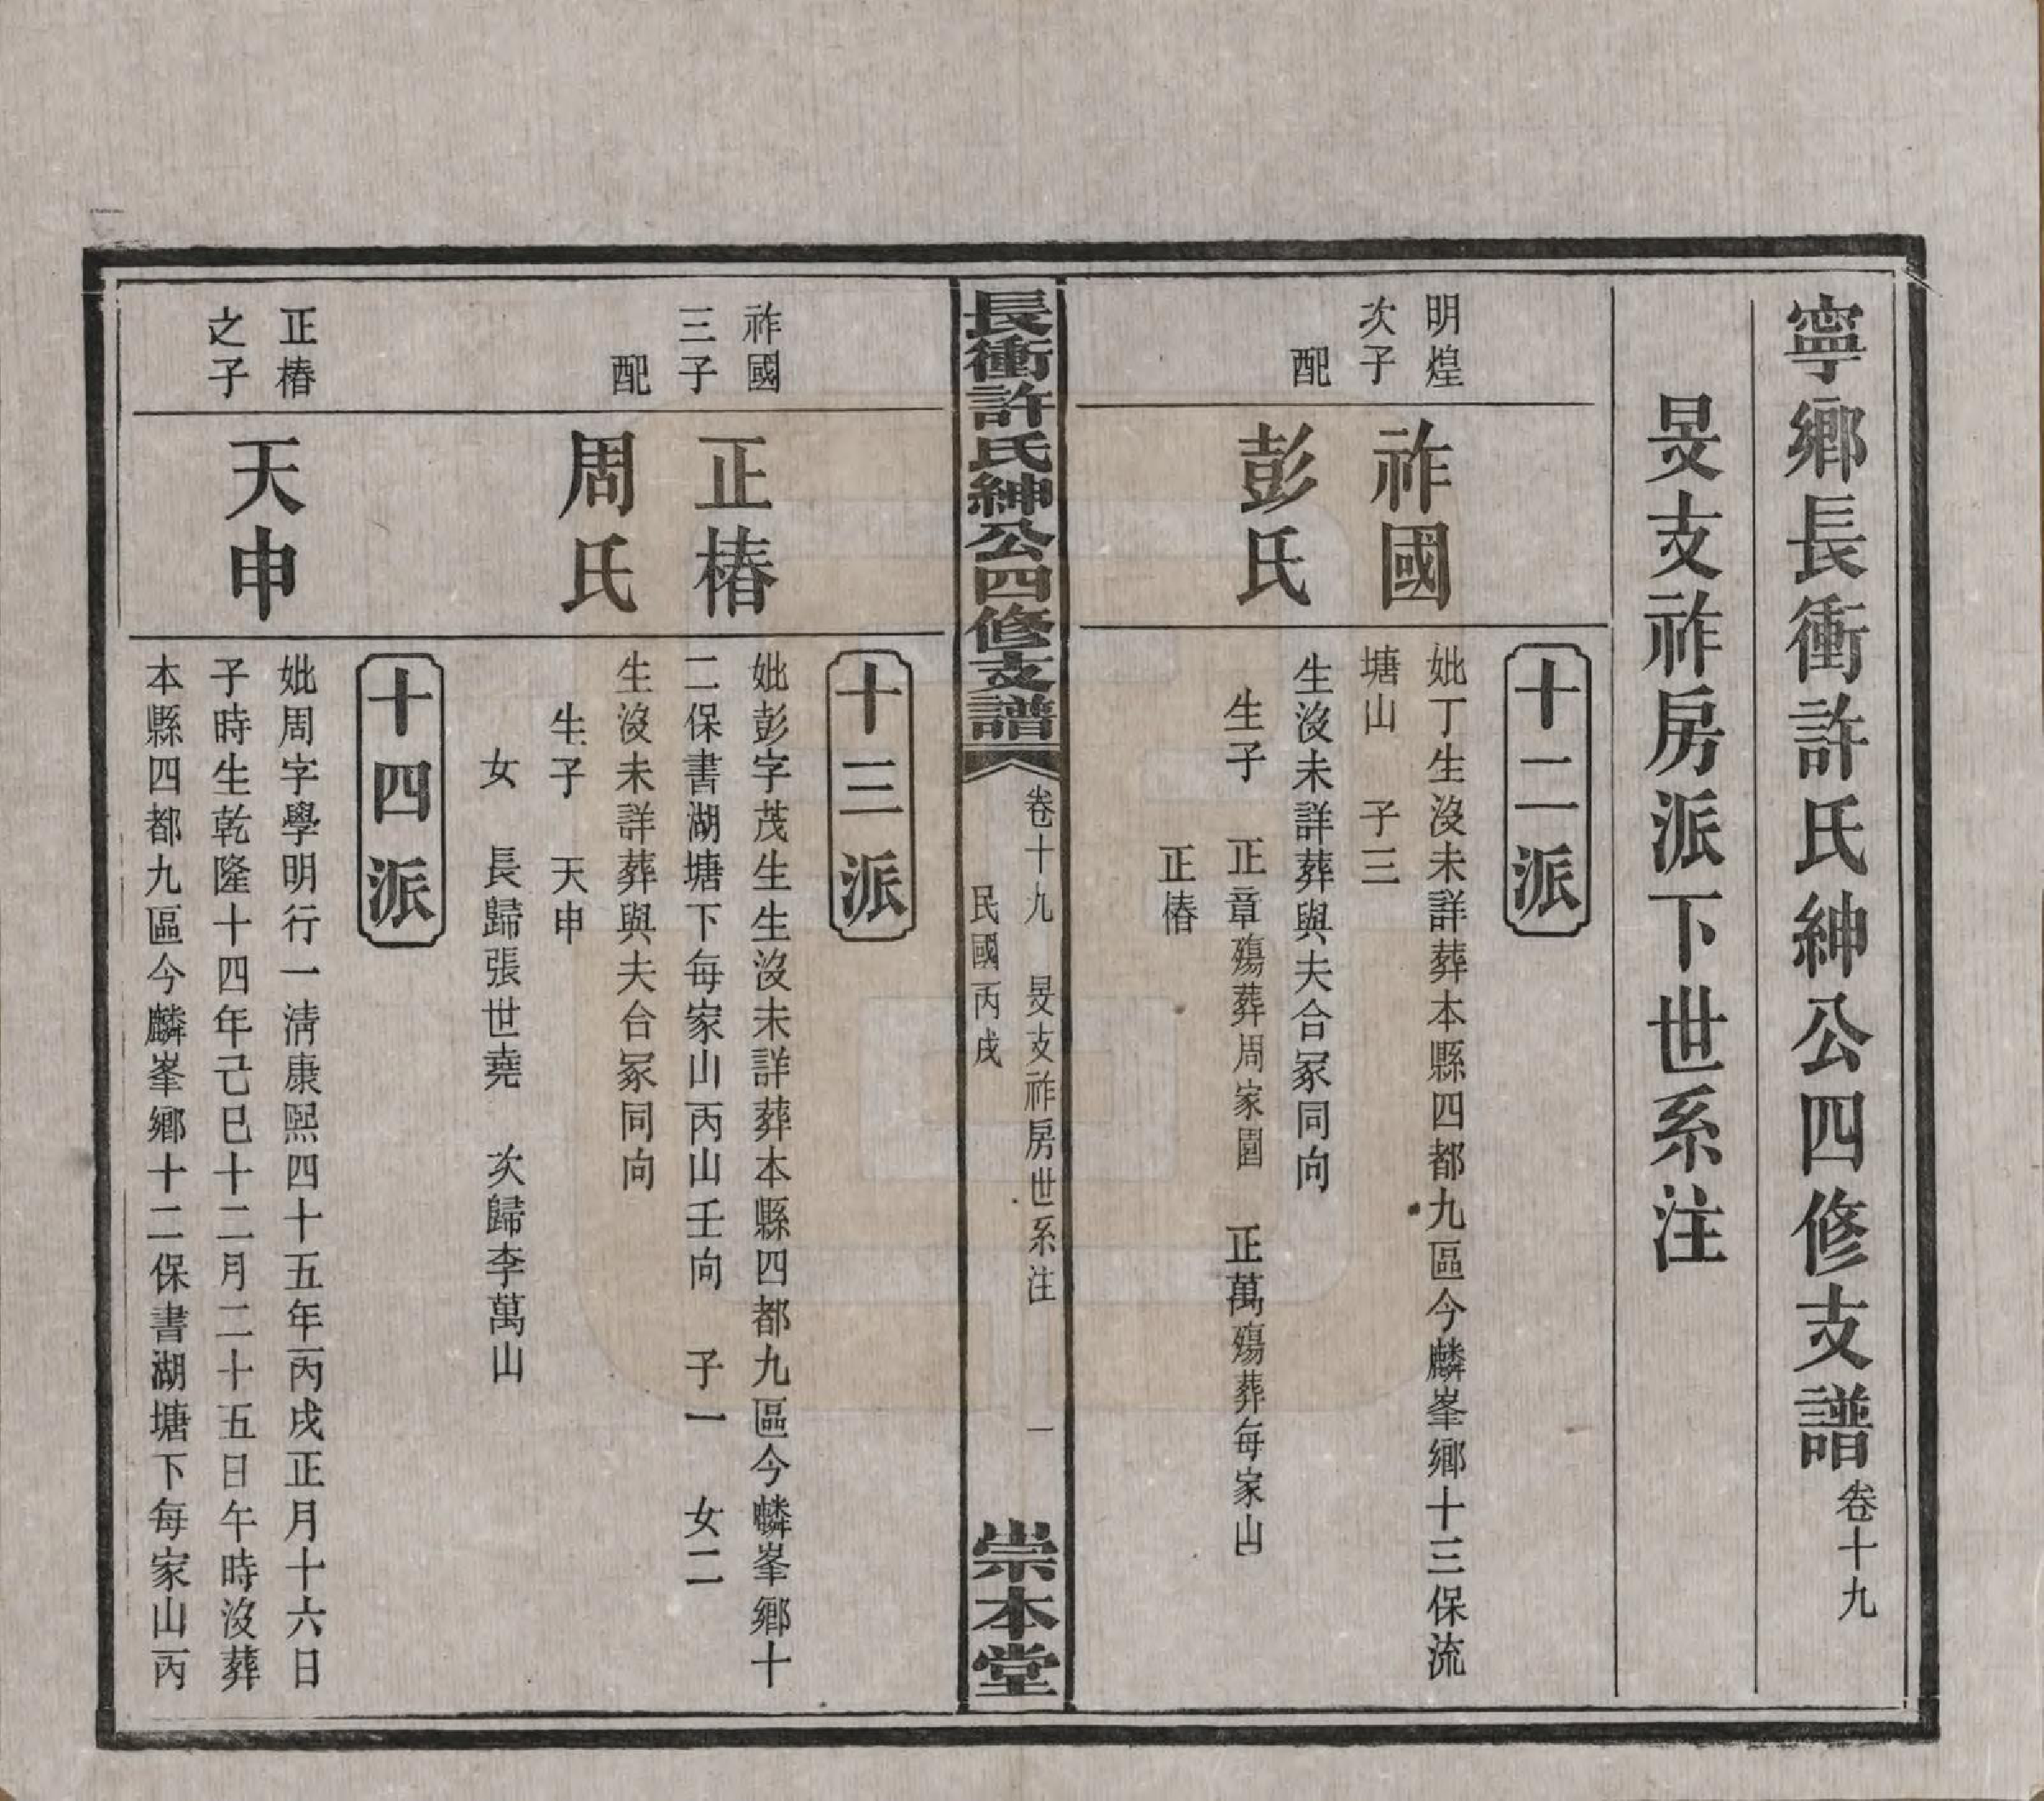 寧鄉長衝許氏紳公四修支譜卷十九
旻支祚房派下世系注
十二派
明煌
次子
祚國
妣丁生沒未詳葬本縣四都九區今麟峯鄉十三保流
塘山 子三
配
彭氏
生沒未詳葬與夫合冢同向
生子 正章殤葬周家園 正萬殤葬每家山
正椿
長衝許氏紳公四修支譜
卷十九 旻支祚房世系注 一
民國丙戌
崇本堂
十三派
祚國
三子
正椿
妣彭字茂生生沒未詳葬本縣四都九區今麟峯鄉十
二保書湖塘下每家山丙山壬向 子一 女二
配
周氏
生沒未詳葬與夫合冢同向
生子 天申
女 長歸張世堯 次歸李萬山
十四派
正椿
之子
天申
妣周字學明行一清康熙四十五年丙戌正月十六日
子時生乾隆十四年己巳十二月二十五日午時沒葬
本縣四都九區今麟峯鄉十二保書湖塘下每家山丙